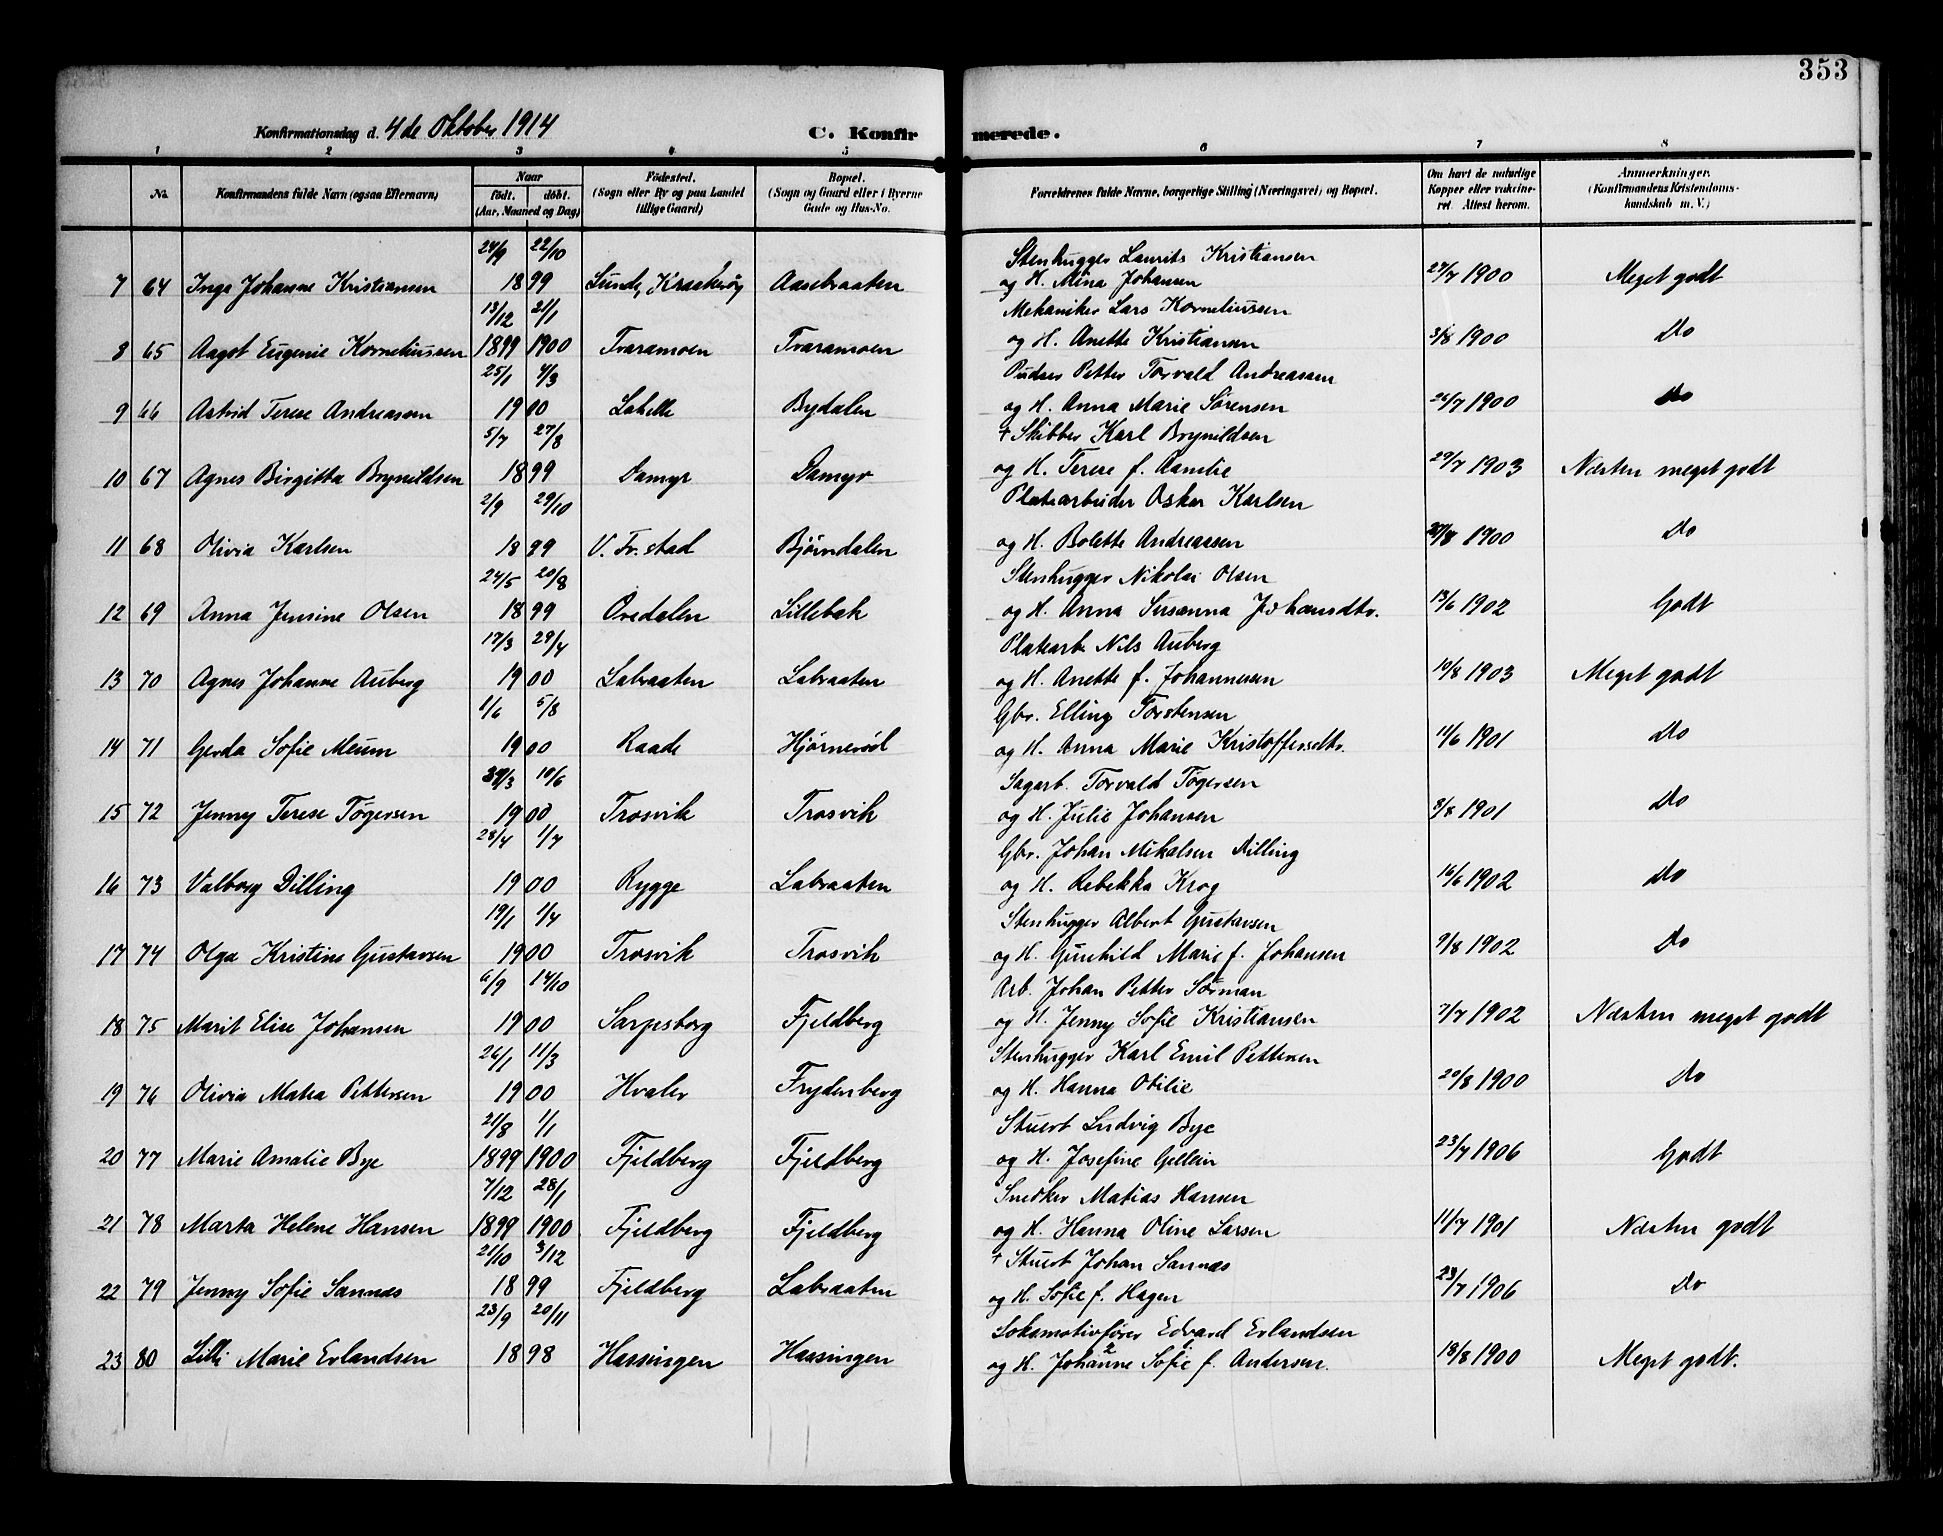 353
Konfirmationsdag d. 4de Oktober 1914 C. Konfirmerede.
1 2 3 4 5 6 7 8
No. Konfirmandens fulde Navn (ogsaa Efternavn) Naar født. døbt. (Aar, Maaned og Dag) Fødested. (Sogn eller By og paa Landet tillige Gaard) Bopæl. (Sogn og Gaard eller i Byerne Gade og Hus-No. Forældrenes fulde Navne, borgerlige Stilling (Næringsvei) og Bopæl. Om havt de naturlige Kopper eller vaccineret. Attest herom. Anmerkninger. (Konfirmandens Kristendomskundskab m. V.)
24/9 22/10 Stenhugger Laurits Kristiansen
7 64 Inga Johanne Kristiansen 1899 Lunde, Kraakerøy Aasebraaten og H. Mina Johansen 27/7 1900 Meget godt
13/12 21/1 Mekaniker Lars Korneliussen
8 65 Aagot Eugenie Korneliussen 1899 1900 Tvaramoen Tvaramoen og H. Anette Kristiansen 3/8 1900 Do
25/1 4/3 Pudser Petter Torvald Andreassen
9 66 Astrid Terese Andreassen 1900 Labelle Bydalen og H. Anna Marie Sørensen 26/7 1900 Do
5/7 27/8 + Skibber Karl Brynildsen
10 67 Agnes Birgitta Brynildsen 1899 Damyr Damyr og H. Terese f. Aamlie 29/7 1903 Næsten meget godt
2/9 29/10 Platearbeider Oskar Karlsen
11 68 Olivia Karlsen 1899 V. Fr.stad Bjørndalen og H. Bolette Andreassen 1900 Do
24/5 20/8 Stenhugger Nikolai Olsen
12 69 Anna Jensine Olsen 1899 Ovedalen Lillebak og H. Anna Susanna Johansdtr. 13/6 1902 Godt
17/3 29/4 Platearb. Nils Auberg
13 70 Agnes Johanne Auberg 1900 Labraaten Labraaten og H. Anette f. Johannesen 10/8 1903 Meget godt
1/6 5/8 Gbr. Elling Torstensen
14 71 Gerda Sofie Meum 1900 Raade Hjørnerød og H. Anna Marie Kristoffersdtr. 11/6 1901 Do
30/3 10/6 Sagarb. Torvald Tøgersen
15 72 Jenny Terese Tøgersen 1900 Trosvik Trosvik og H. Julie Johansen 3/8 1901 Do
28/4 1/7 Gbr. Johan Mikalsen Dilling
16 73 Valborg Dilling 1900 Rygge Labraaten og H. Rebekka Krog 16/6 1902 Do
19/1 1/4 Stenhugger Albert Gustavsen
17 74 Olga Kristine Gustavsen 1900 Trosvik Trosvik og H. Gunhild Marie f. Johansen 9/8 1902 Do
6/9 14/10 Arb. Johan Petter Sörman
18 75 Marit Elise Johansen 1900 Sarpsborg Fjeldberg og H. Jenny Sofie Kristiansen 7/7 1902 Næsten meget godt
26/1 11/3 Stenhugger Karl Emil Pettersen
19 76 Olivia Matea Pettersen 1900 Hvaler Frydenberg og H. Hanna Otilie 20/8 1900 Do
21/8 1/1 Stuert Ludvig Bye
20 77 Marie Amalie Bye 1899 1900 Fjeldberg Fjeldberg og H. Josefine Gellein 23/7 1906 Godt
7/12 28/1 Snedker Matias Hansen
21 78 Marta Helene Hansen 1899 1900 Fjeldberg Fjeldberg og H. Hanna Oline Larsen 11/7 1901 Næsten godt
21/10 3/12 + Stuert Johan Sannæs
22 79 Jenny Sofie Sannæs 1899 Fjeldberg Labraaten og H. Sofie f. Hagen 23/7 1906 Do
23/9 20/11 Lokomotivfører Edvard Erlandsen
23 80 Lilli Marie Erlandsen 1898 Hassingen Hassingen og H. Johanne Sofie f. Andersen. 18/8 1900 Meget godt.